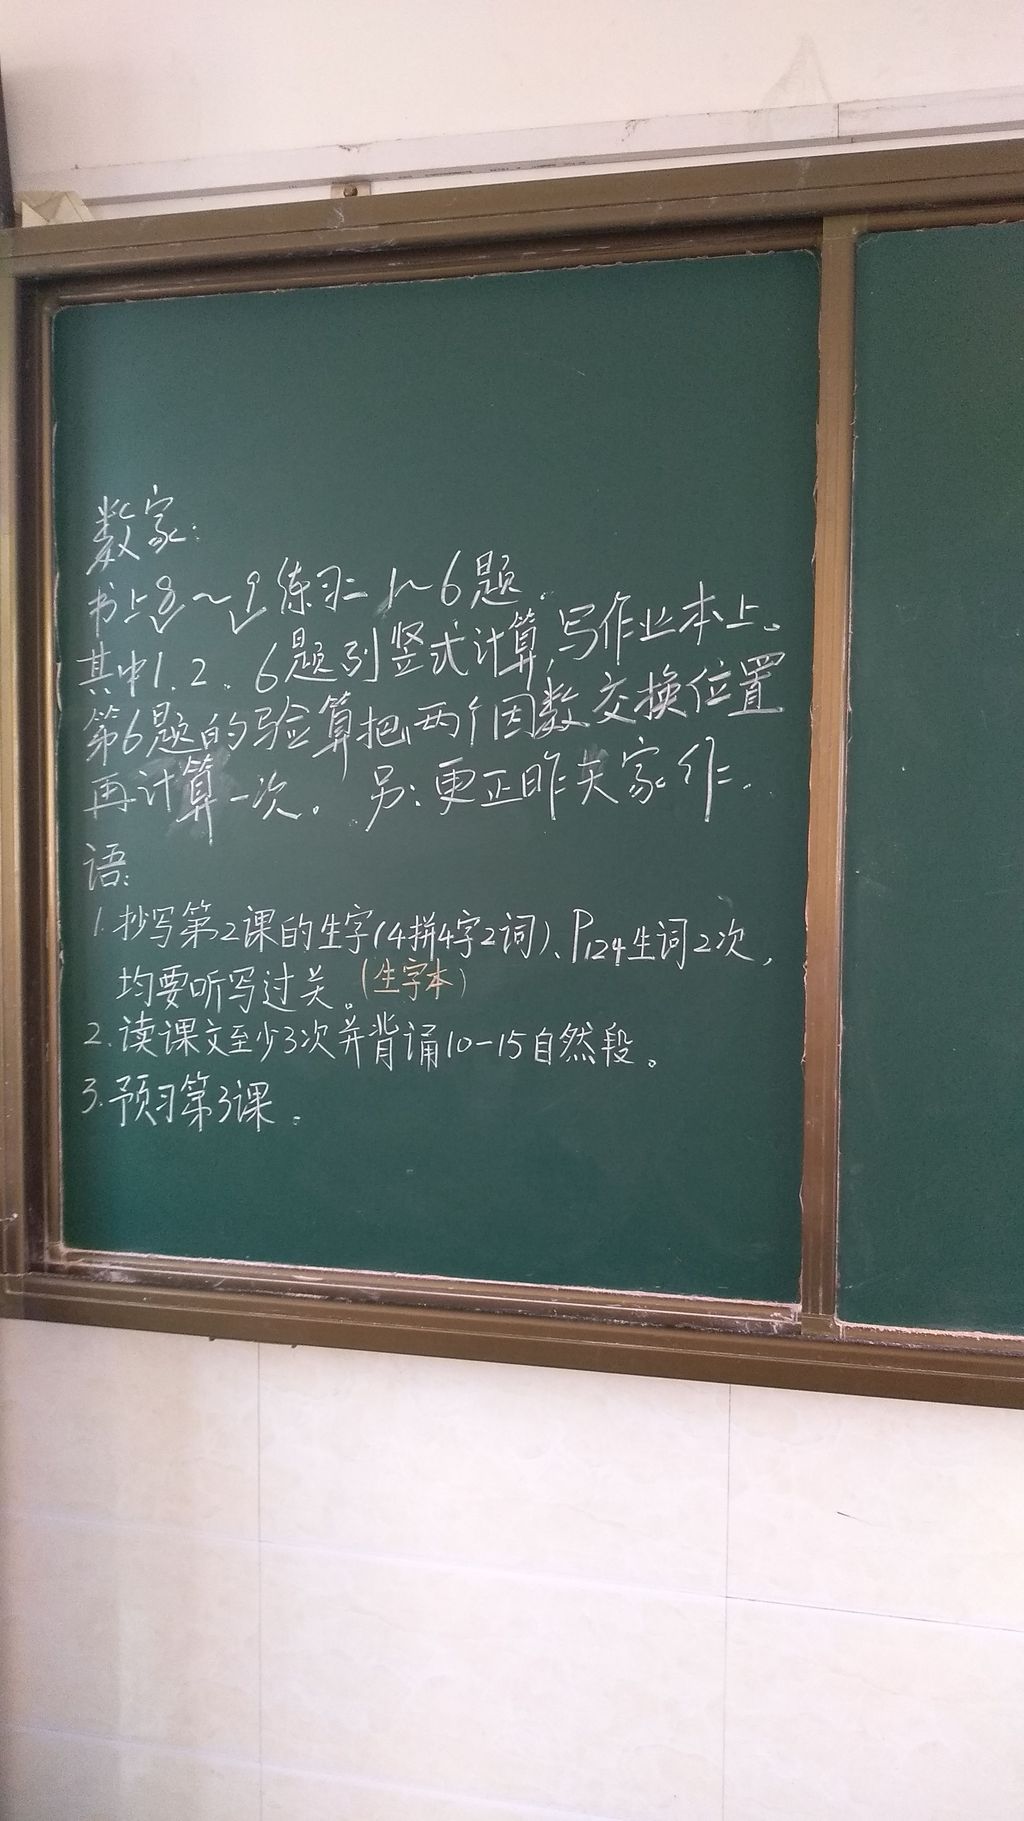 数家:
书上8~9练习二1~6题.
其中1.2.6题列竖式计算,写作业本上。
第6题的验算把两个因数交换位置
再计算一次。另:更正昨天家作.
语:
1.抄写第2课的生字(4拼4字2词)、P124生词2次,
均要听写过关。(生字本)
2.读课文至少3次并背诵10-15自然段。
3.预习第3课。